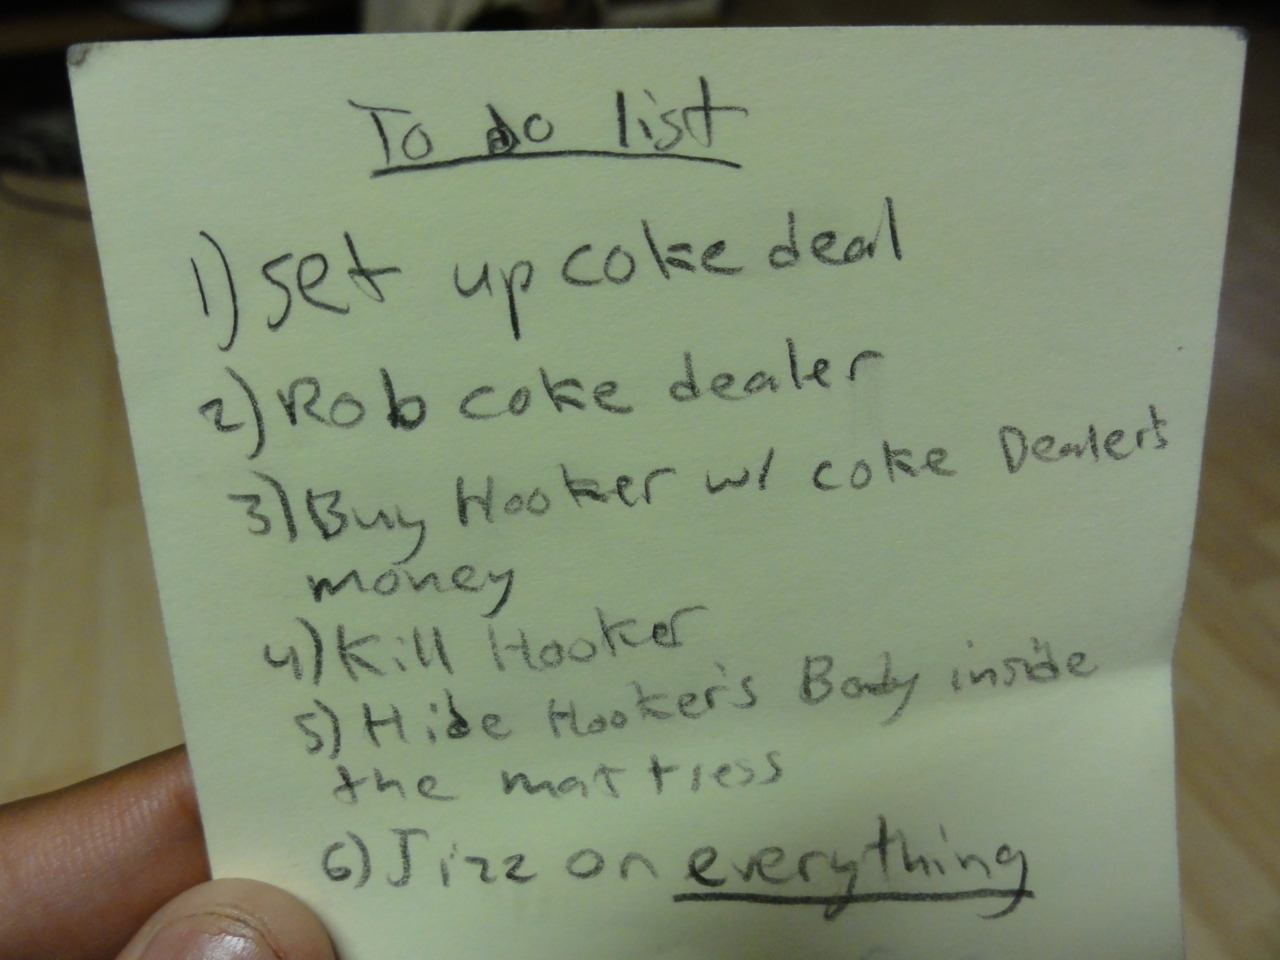 To do list
1) Set up coke deal
2) Rob coke dealer
3) Buy Hooker w/ coke Dealer's
money
4) Kill Hooker
5) Hide Hooker's Body inside
the mattress
6) Jizz on everything